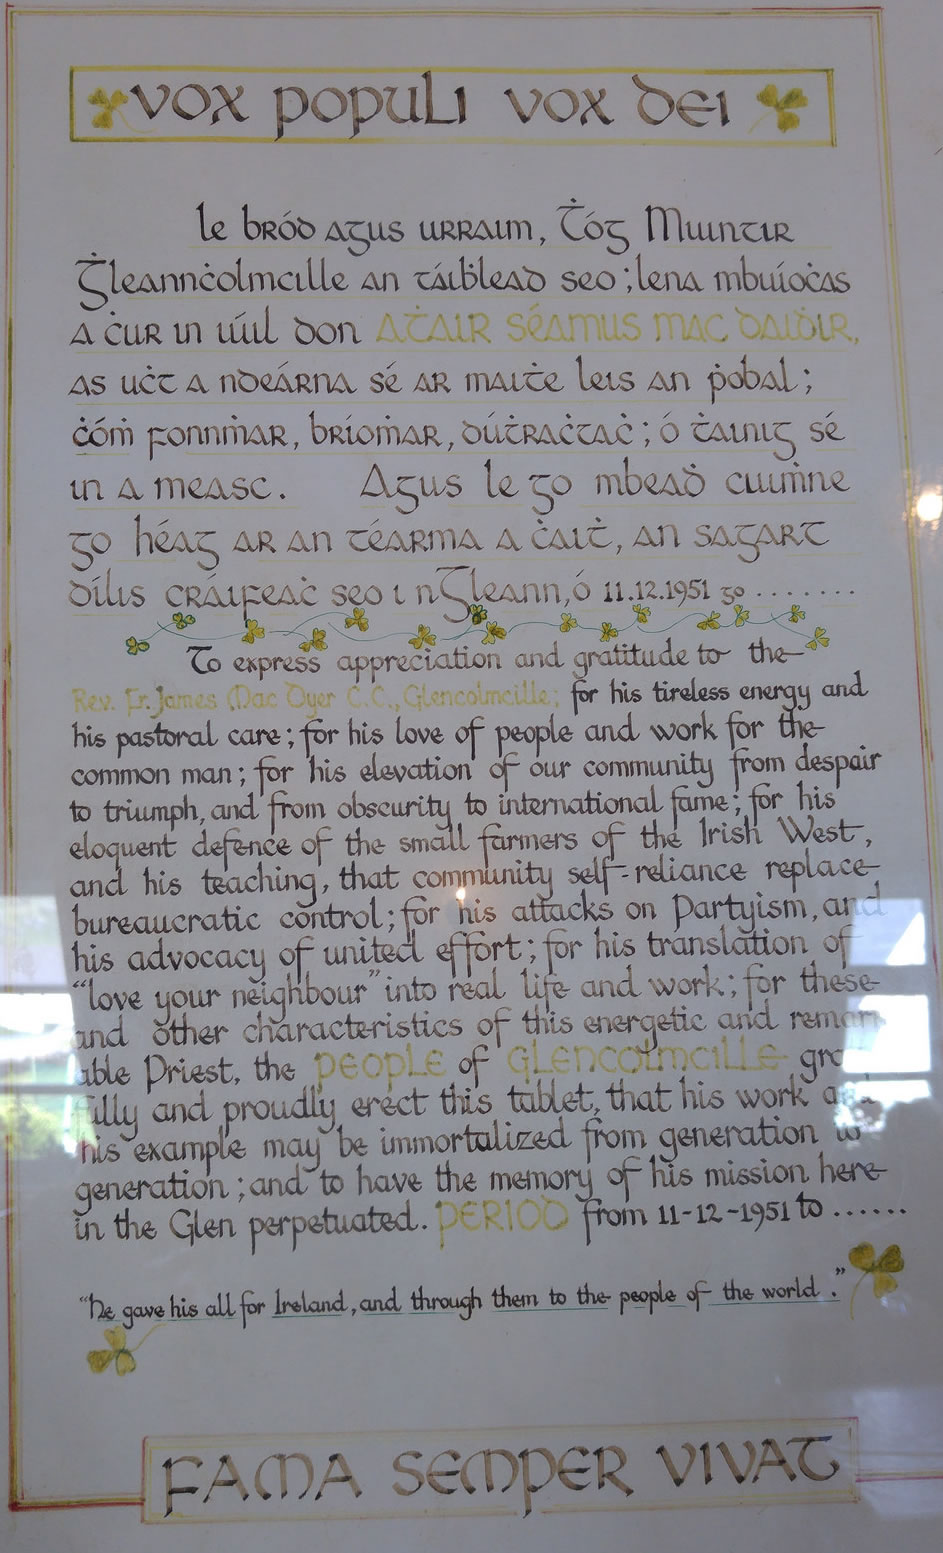 VOX POPULI VOX DEI
le bród agus urraim, Ṫóg Muintir
Ġleannċolmcille an táiḃlead seo; lena mbuíoċas
a ċur in iúil don AṪAIR SÉAMUS MAC DAIḊIR,
as uċt a ndeárna sé ar maiṫe leis an ṗobal;
ċóṁ fonnṁar, bríoṁar, dúṫraċtaċ; ó ṫainig sé
in a measc. Agus le go mbeaḋ cuiṁne
go héag ar an téarma a ċaiṫ, an sagart
dílis cráifeaċ seo i nGleann, ó 11.12.1951 go ........
To express appreciation and gratitude to the
Rev. Fr. James Mac Dyer C.C., Glencolmcille; for his tireless energy and
his pastoral care; for his love of people and work for the
common man; for his elevation of our community from despair
to triumph, and from obscurity to international fame; for his
eloquent defence of the small farmers of the Irish West,
and his teaching, that community self-reliance replace
bureaucratic control; for his attacks on Partyism, and
his advocacy of united effort; for his translation of
“love your neighbour” into real life and work; for these
and other characteristics of this energetic and remark
able Priest, the PEOPLE of GLENCOLMCILLE
fully and proudly erect this tablet, that his work and
his example may be immortalized from generation to
generation; and to have the memory of his mission here
in the Glen perpetuated. PERIOD from 11-12-1951 to ......
“he gave his all for Ireland, and through them to the people of the world.”
FAMA SEMPER VIVAT